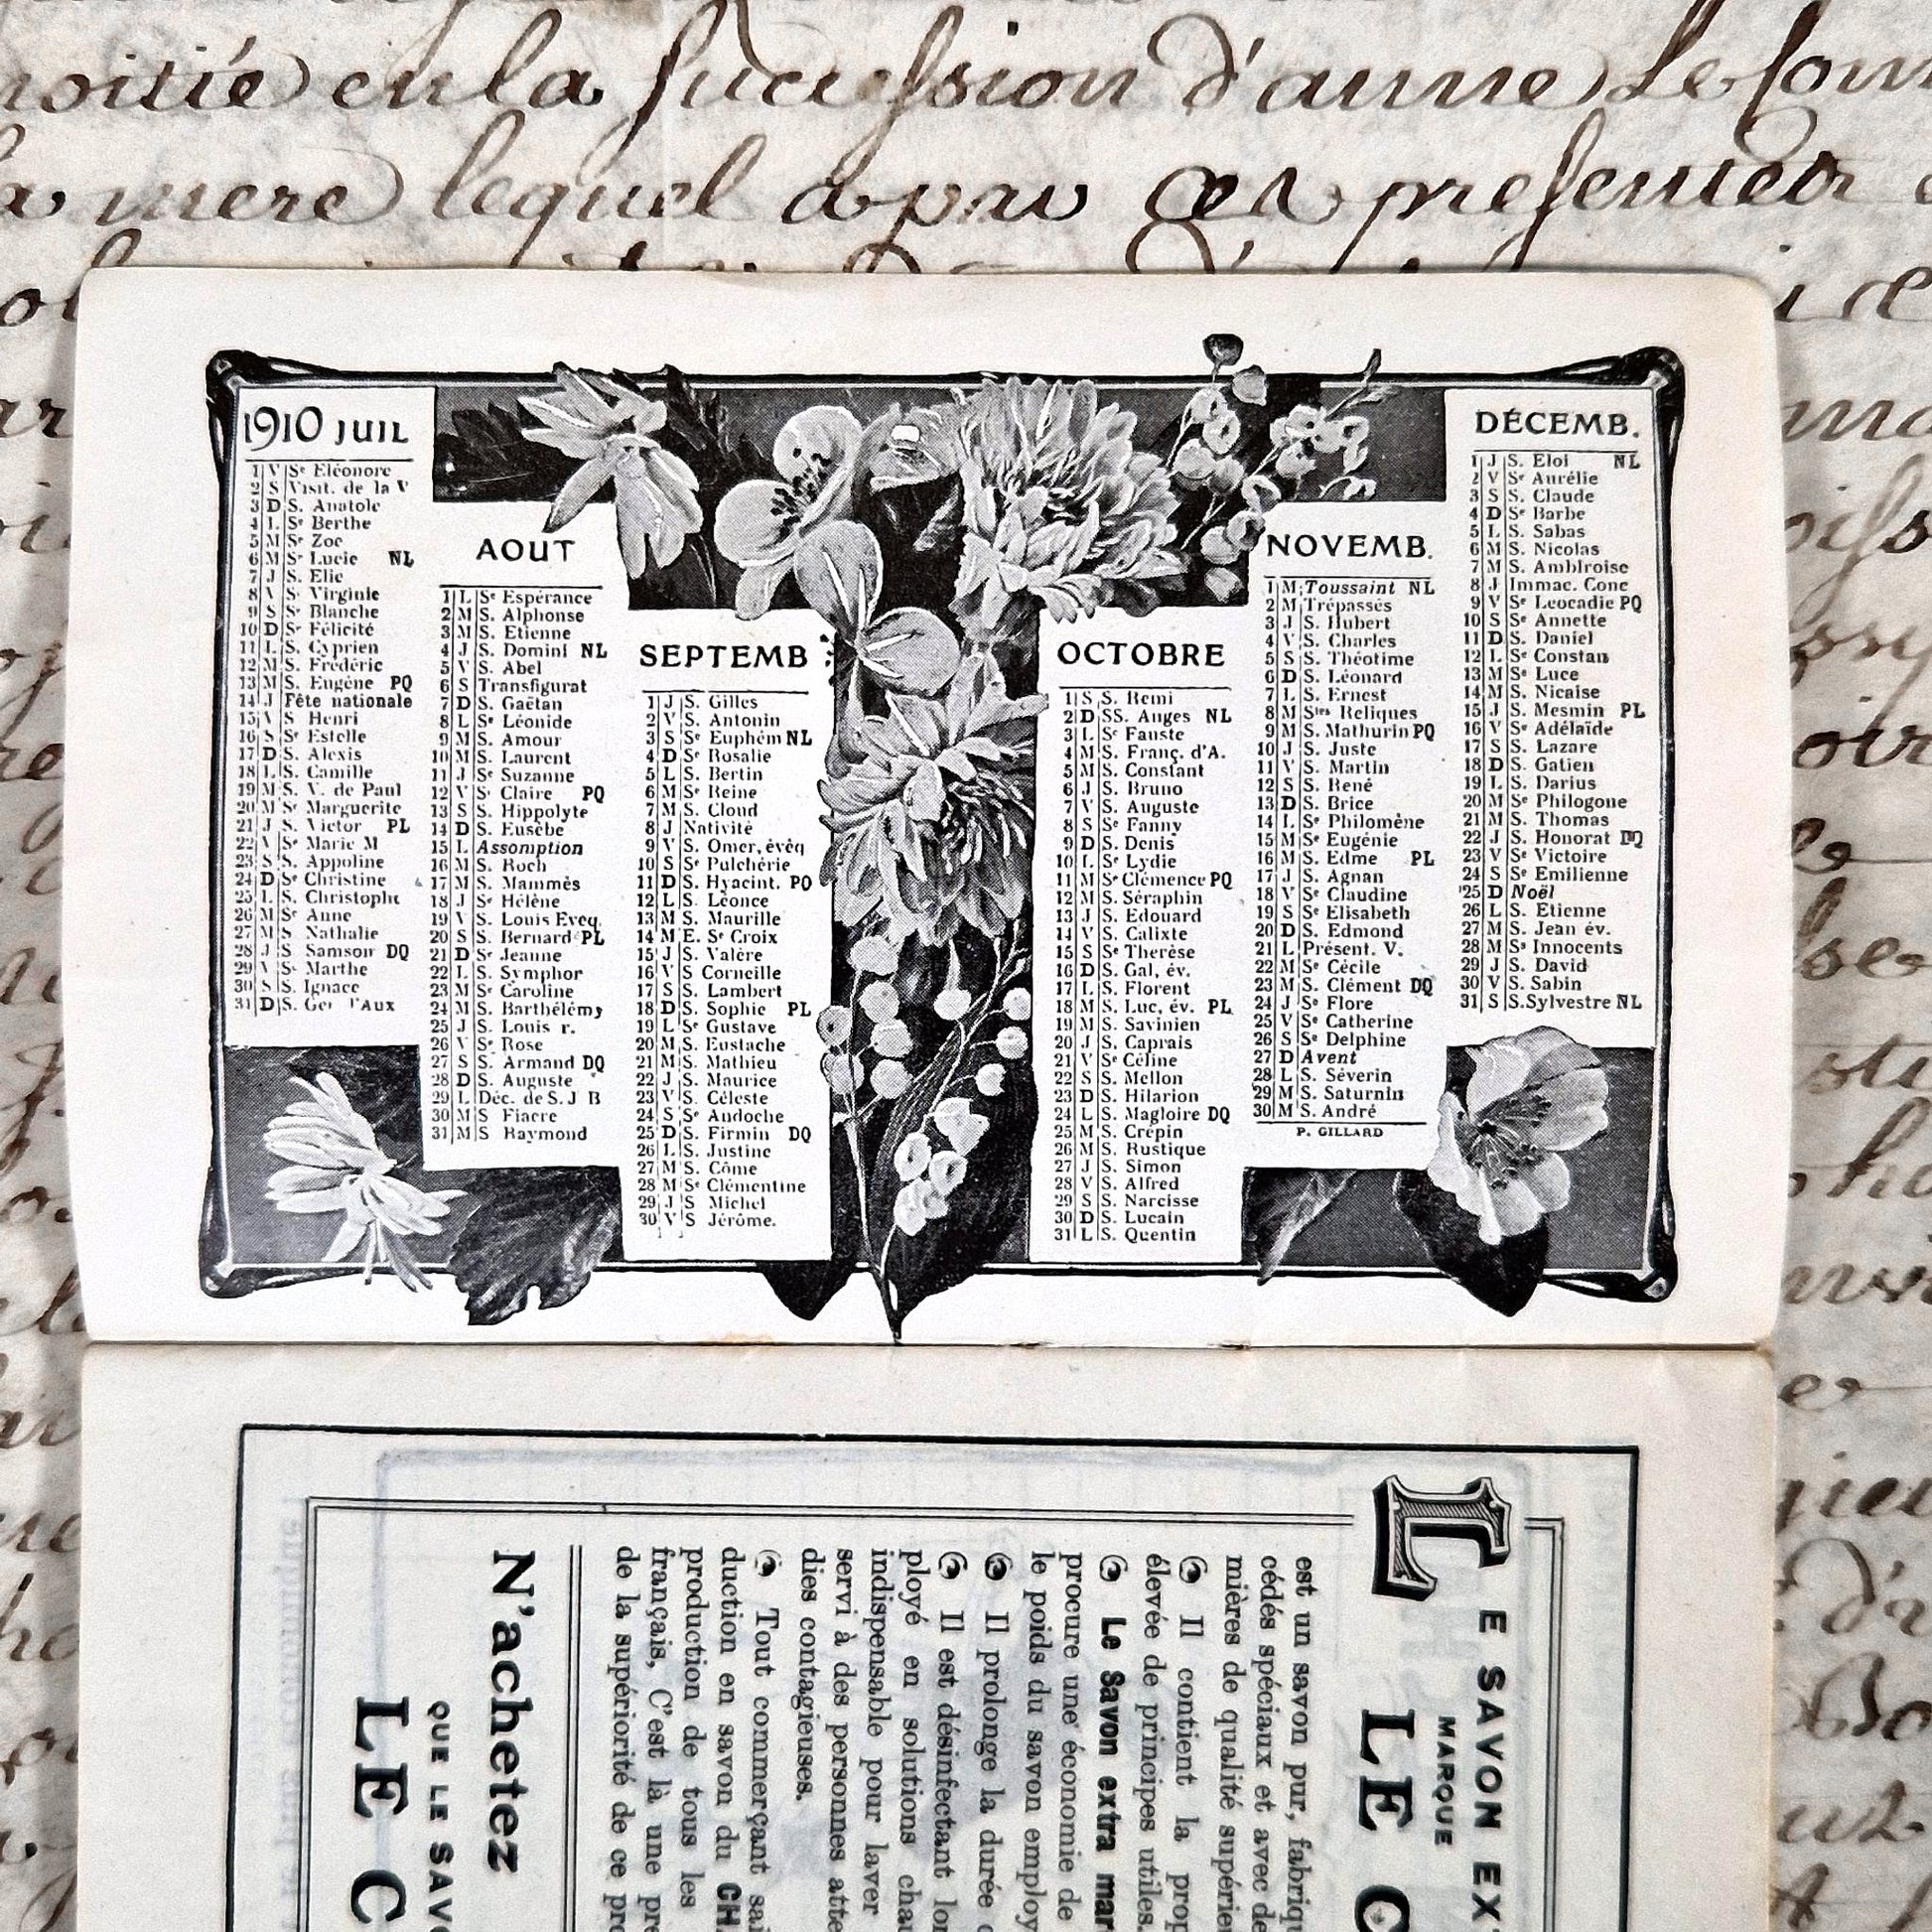 moitié en la succession d'anne Le
la mere lequel a par ces presentes
1910 JUIL
1 V Sᵉ Eléonore
2 S Visit. de la V
3 D S. Anatole
4 L Sᵉ Berthe
5 M Sᵉ Zoe
6 M Sᵉ Lucie NL
7 J S. Elie
8 V S. Virginie
9 S Sᵉ Blanche
10 D Sᵉ Félicité
11 L S. Cyprien
12 M S. Frédéric
13 M S. Eugène PQ
14 J Fête nationale
15 V S Henri
16 S Sᵉ Estelle
17 D S. Alexis
18 L S. Camille
19 M S. V. de Paul
20 M Sᵉ Marguerite
21 J S. Victor PL
22 V Sᵉ Marie M
23 S S. Appoline
24 D Sᵉ Christine
25 L S. Christophe
26 M Sᵉ Anne
27 M S. Nathalie
28 J S Samson DQ
29 V Sᵉ Marthe
30 S S. Ignace
31 D S. Ger l'Aux
AOUT
1 L Sᵉ Espérance
2 M S. Alphonse
3 M S. Etienne
4 J S. Domini NL
5 V S. Abel
6 S Transfigurat
7 D S. Gaëtan
8 L Sᵉ Léonide
9 M S. Amour
10 M S. Laurent
11 J Sᵉ Suzanne
12 V Sᵉ Claire PQ
13 S S. Hippolyte
14 D S. Eusèbe
15 L Assomption
16 M S. Roch
17 M S. Mammès
18 J Sᵉ Hélène
19 V S. Louis Evêq.
20 S S. Bernard PL
21 D Sᵉ Jeanne
22 L S. Symphor
23 M Sᵉ Caroline
24 M S. Barthélémy
25 J S. Louis r.
26 V Sᵉ Rose
27 S S. Armand DQ
28 D S. Auguste
29 L Déc. de S. J B
30 M S Fiacre
31 M S Raymond
SEPTEMB
1 J S. Gilles
2 V S. Antonin
3 S Sᵉ Euphém NL
4 D Sᵉ Rosalie
5 L S. Bertin
6 M Sᵉ Reine
7 M S. Cloud
8 J Nativité
9 V S. Omer, évêq
10 S Sᵉ Pulchérie
11 D S. Hyacint. PQ
12 L S. Léonce
13 M S. Maurille
14 M E. Sᵉ Croix
15 J S. Valère
16 V S Corneille
17 S S. Lambert
18 D S. Sophie PL
19 L Sᵉ Gustave
20 M S. Eustache
21 M S. Mathieu
22 J S. Maurice
23 V S. Céleste
24 S Sᵉ Andoche
25 D S. Firmin DQ
26 L S. Justine
27 M S. Côme
28 M Sᵉ Clémentine
29 J S Michel
30 V S Jérôme.
OCTOBRE
1 S S. Remi
2 D SS. Anges NL
3 L Sᵉ Fauste
4 M S. Franç. d'A.
5 M S. Constant
6 J S. Bruno
7 V S. Auguste
8 S Sᵉ Fanny
9 D S. Denis
10 L Sᵉ Lydie
11 M Sᵉ Clémence PQ
12 M S. Séraphin
13 J S. Edouard
14 V S. Calixte
15 S Sᵉ Therèse
16 D S. Gal, év.
17 L S. Florent
18 M S. Luc, év. PL
19 M S. Savinien
20 J S. Caprais
21 V Sᵉ Céline
22 S S. Mellon
23 D S. Hilarion
24 L S. Magloire DQ
25 M S. Crépin
26 M S. Rustique
27 J S. Simon
28 V S. Alfred
29 S S. Narcisse
30 D S. Lucain
31 L S. Quentin
NOVEMB.
1 M Toussaint NL
2 M Trépassés
3 J S. Hubert
4 V S. Charles
5 S S. Théotime
6 D S. Léonard
7 L S. Ernest
8 M Sᵗᵉˢ Reliques
9 M S. Mathurin PQ
10 J S. Juste
11 V S. Martin
12 S S. René
13 D S. Brice
14 L Sᵉ Philomène
15 M Sᵉ Eugénie
16 M S. Edme PL
17 J S. Agnan
18 V Sᵉ Claudine
19 S Sᵉ Elisabeth
20 D S. Edmond
21 L Présent. V.
22 M Sᵉ Cécile
23 M S. Clément DQ
24 J Sᵉ Flore
25 V Sᵉ Catherine
26 S Sᵉ Delphine
27 D Avent
28 L S. Séverin
29 M S. Saturnin
30 M S. André
P. GILLARD
DÉCEMB.
1 J S. Eloi NL
2 V Sᵉ Aurélie
3 S S. Claude
4 D Sᵉ Barbe
5 L S. Sabas
6 M S. Nicolas
7 M S. Ambiroise
8 J Immac. Conc
9 V Sᵉ Leocadie PQ
10 S Sᵉ Annette
11 D S. Daniel
12 L Sᵉ Constan
13 M Sᵉ Luce
14 M S. Nicaise
15 J S. Mesmin PL
16 V Sᵉ Adélaïde
17 S S. Lazare
18 D S. Gatien
19 L S. Darius
20 M Sᵉ Philogone
21 M S. Thomas
22 J S. Honorat DQ
23 V Sᵉ Victoire
24 S Sᵉ Emilienne
25 D Noël
26 L S. Etienne
27 M S. Jean év.
28 M Sˢ Innocents
29 J S. David
30 V S. Sabin
31 S S. Sylvestre NL
LE SAVON EXT
MARQUE
LE C
est un savon pur, fabriqu
cédés spéciaux et avec de
mières de qualité supérieu
Il contient la prop
élevée de principes utiles.
Le Savon extra mar
procure une économie de
le poids du savon employ
Il prolonge la durée d
Il est désinfectant lor
ployé en solutions chau
indispensable pour laver
servi à des personnes atte
dies contagieuses.
Tout commerçant sai
duction en savon du CHA
production de tous les
français, C'est là une pre
de la supériorité de ce pro
N'achetez
QUE LE SAVO
LE C